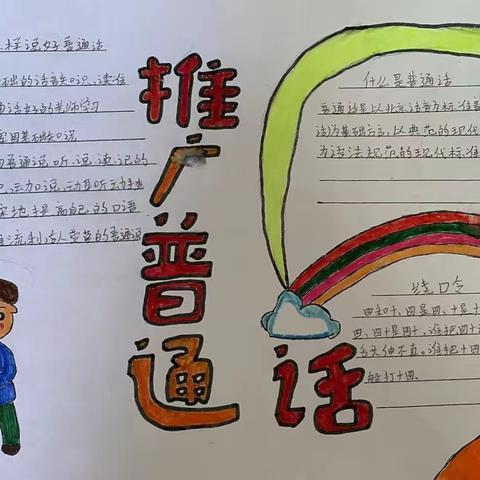 样说好普通话
础的语音知识、读准
话好的老师学习
常用基础知识
普通话、听、说、读、记的
动口说、动耳听、动手
地提高自己的口语
流利、令人
推广普通话
什么是普通话
普通话是以北京语音为标准音
话为基础方言,以典范的现代
为语法规范的现代标准
绕口令
四和十,四是四,十是十
四,四十是四十,谁把四十
舌头伸不直。谁把十四
打十四。